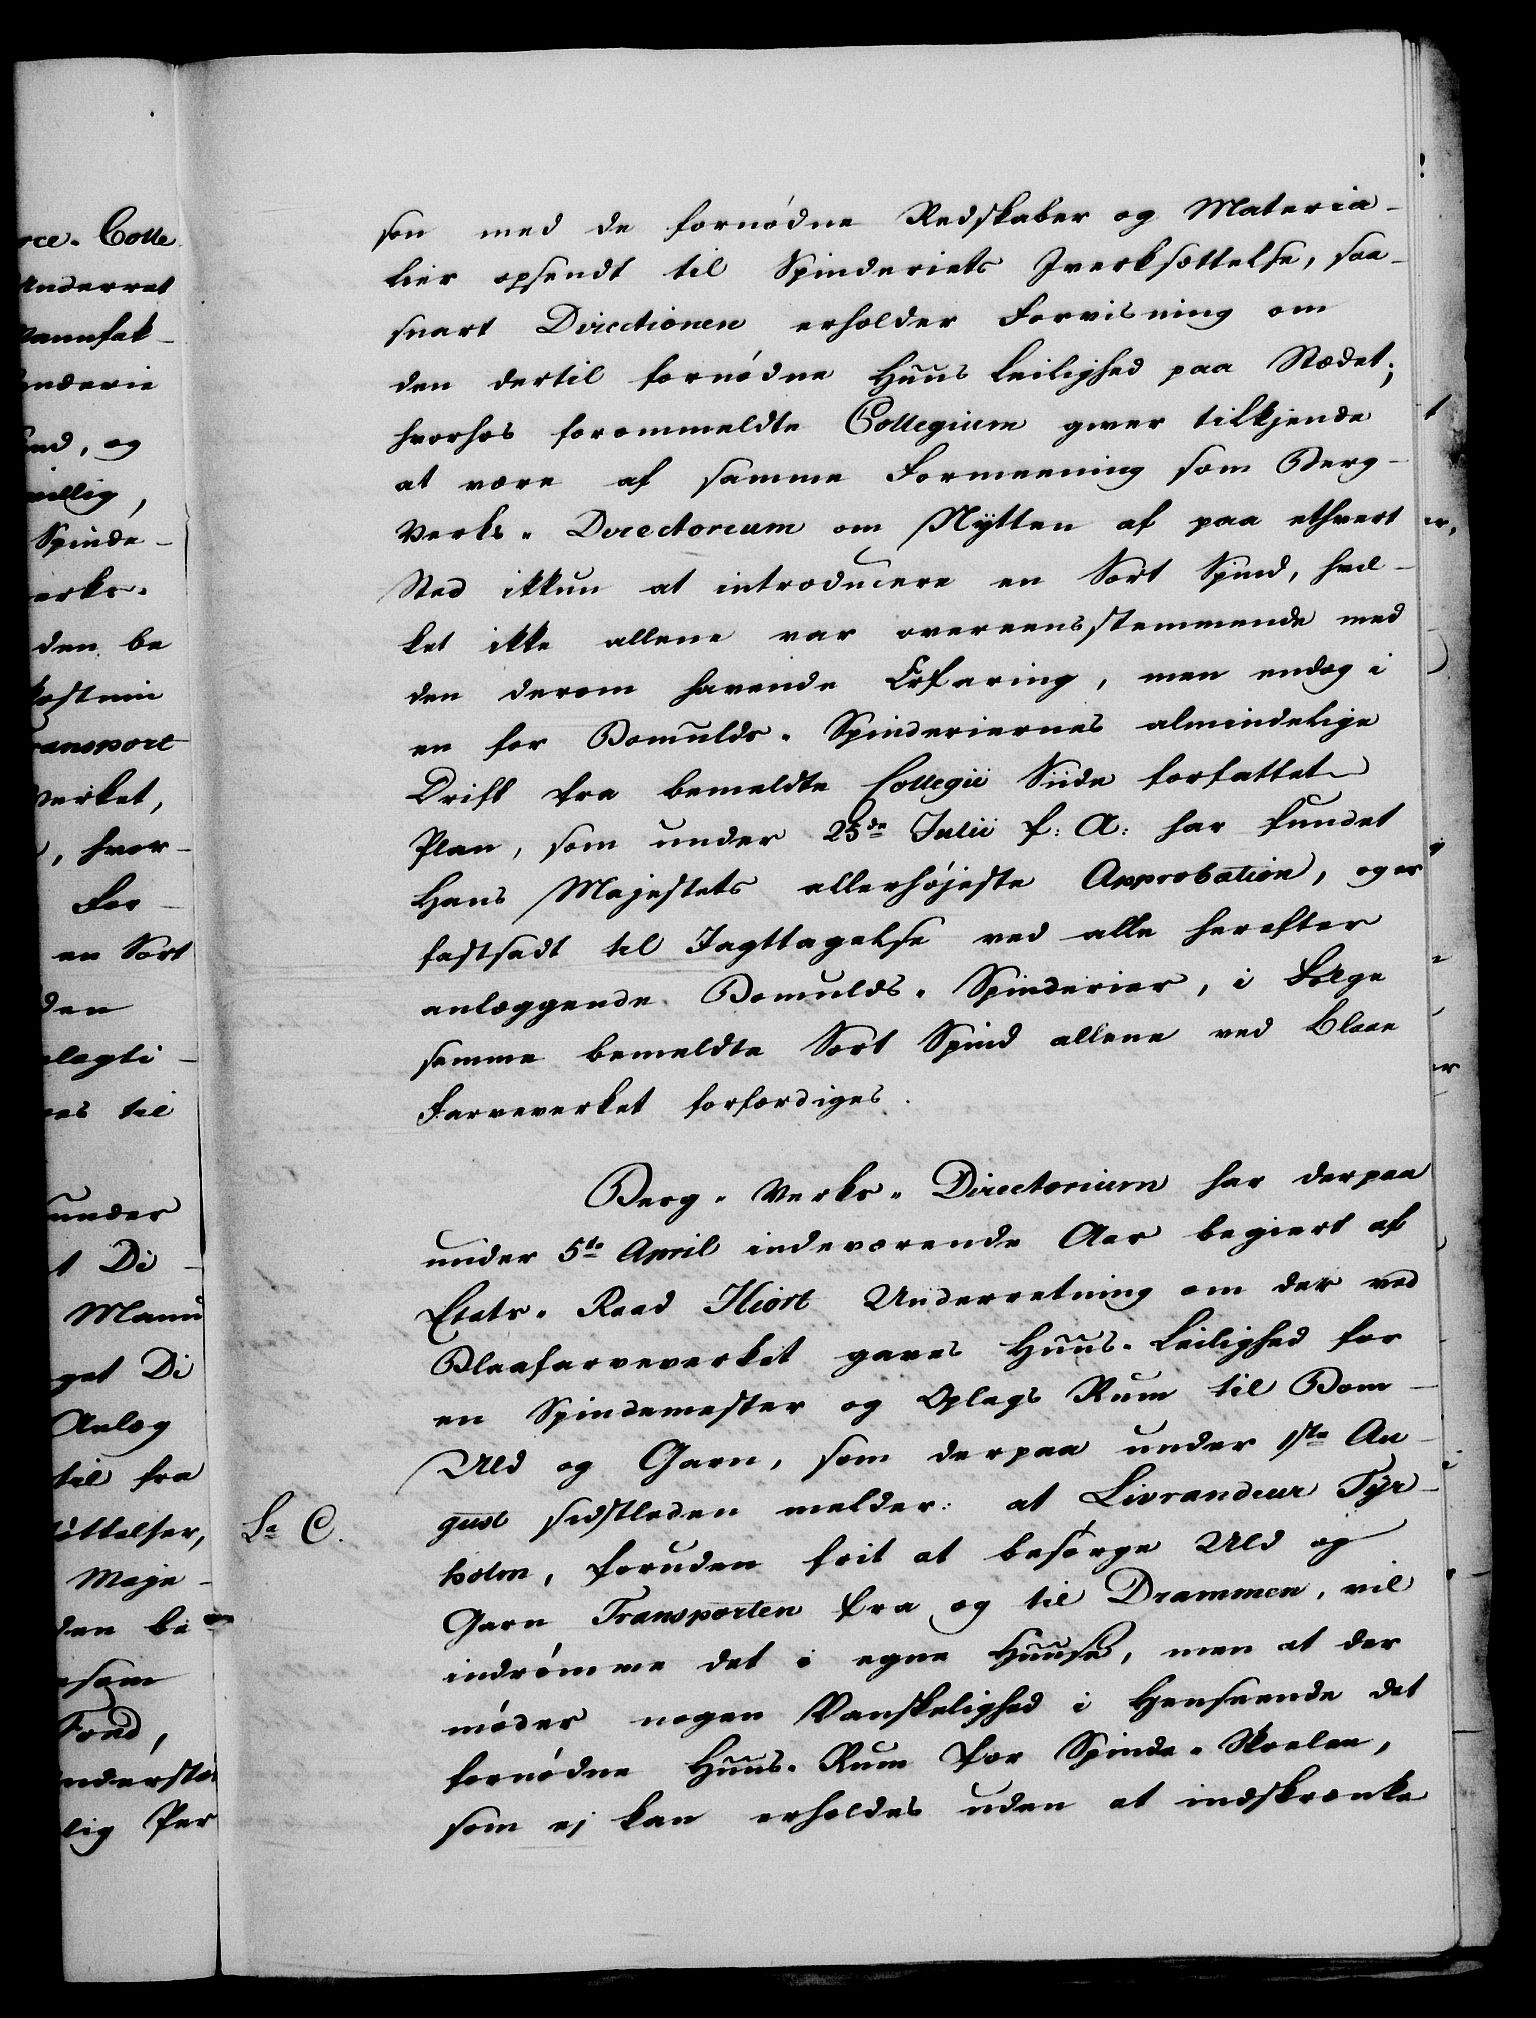 son med de fornødne Redskaber og Materia-
lier opsendt til Spinderiets Iverksættelse, saa-
snart Directionen erholder Forvisning om
den dertil fornødne Huus Leilighed paa Stædet;
hvorhos forommeldte Collegium giver tilkjende
at være af samme Formeening som Berg-
Verks-Directorium om Nÿtten af paa ethvert
Sted ikkun at introducere en Sort Spind, hvil-
ket ikke allene var overeensstemmende med
den derom havende Erfaring, men endog i
en for Bomulds-Spinderiernes almindelige
Drift fra bemeldte Collegii Siide forfattet
Plan, som under 23de Julii f: A: har fundet
Hans Majestets allerhøjeste Approbation, og er
fastsadt til Iagttagelse ved alle herefter
anlæggende Bomulds-Spinderier, i Følge
samme bemeldte Sort Spind allene ved Blaae
Farveverket forfærdiges.
Berg-Verks-Directorium har derpaa
under 5te April indeværende Aar begiert af
Etats-Raad Hiort Underretning om der ved
Blaafarveverket gaves Huus-Leilighed for
en Spindemester og Oplags Rum til Bom-
Uld og Garn, som derpaa under 1ste Au-
gust sidstleden melder: at Livrandeur Tÿr-
La C.
holm, foruden frit at besørge Uld og
Garn Transporten fra og til Drammen, vil
indrømme det i egne Huuse, men at der
møder nogen Vanskelighed i Henseende det
fornødne Huus-Rum for Spinde-Skolen,
som ej kan erholdes uden at indskrænke